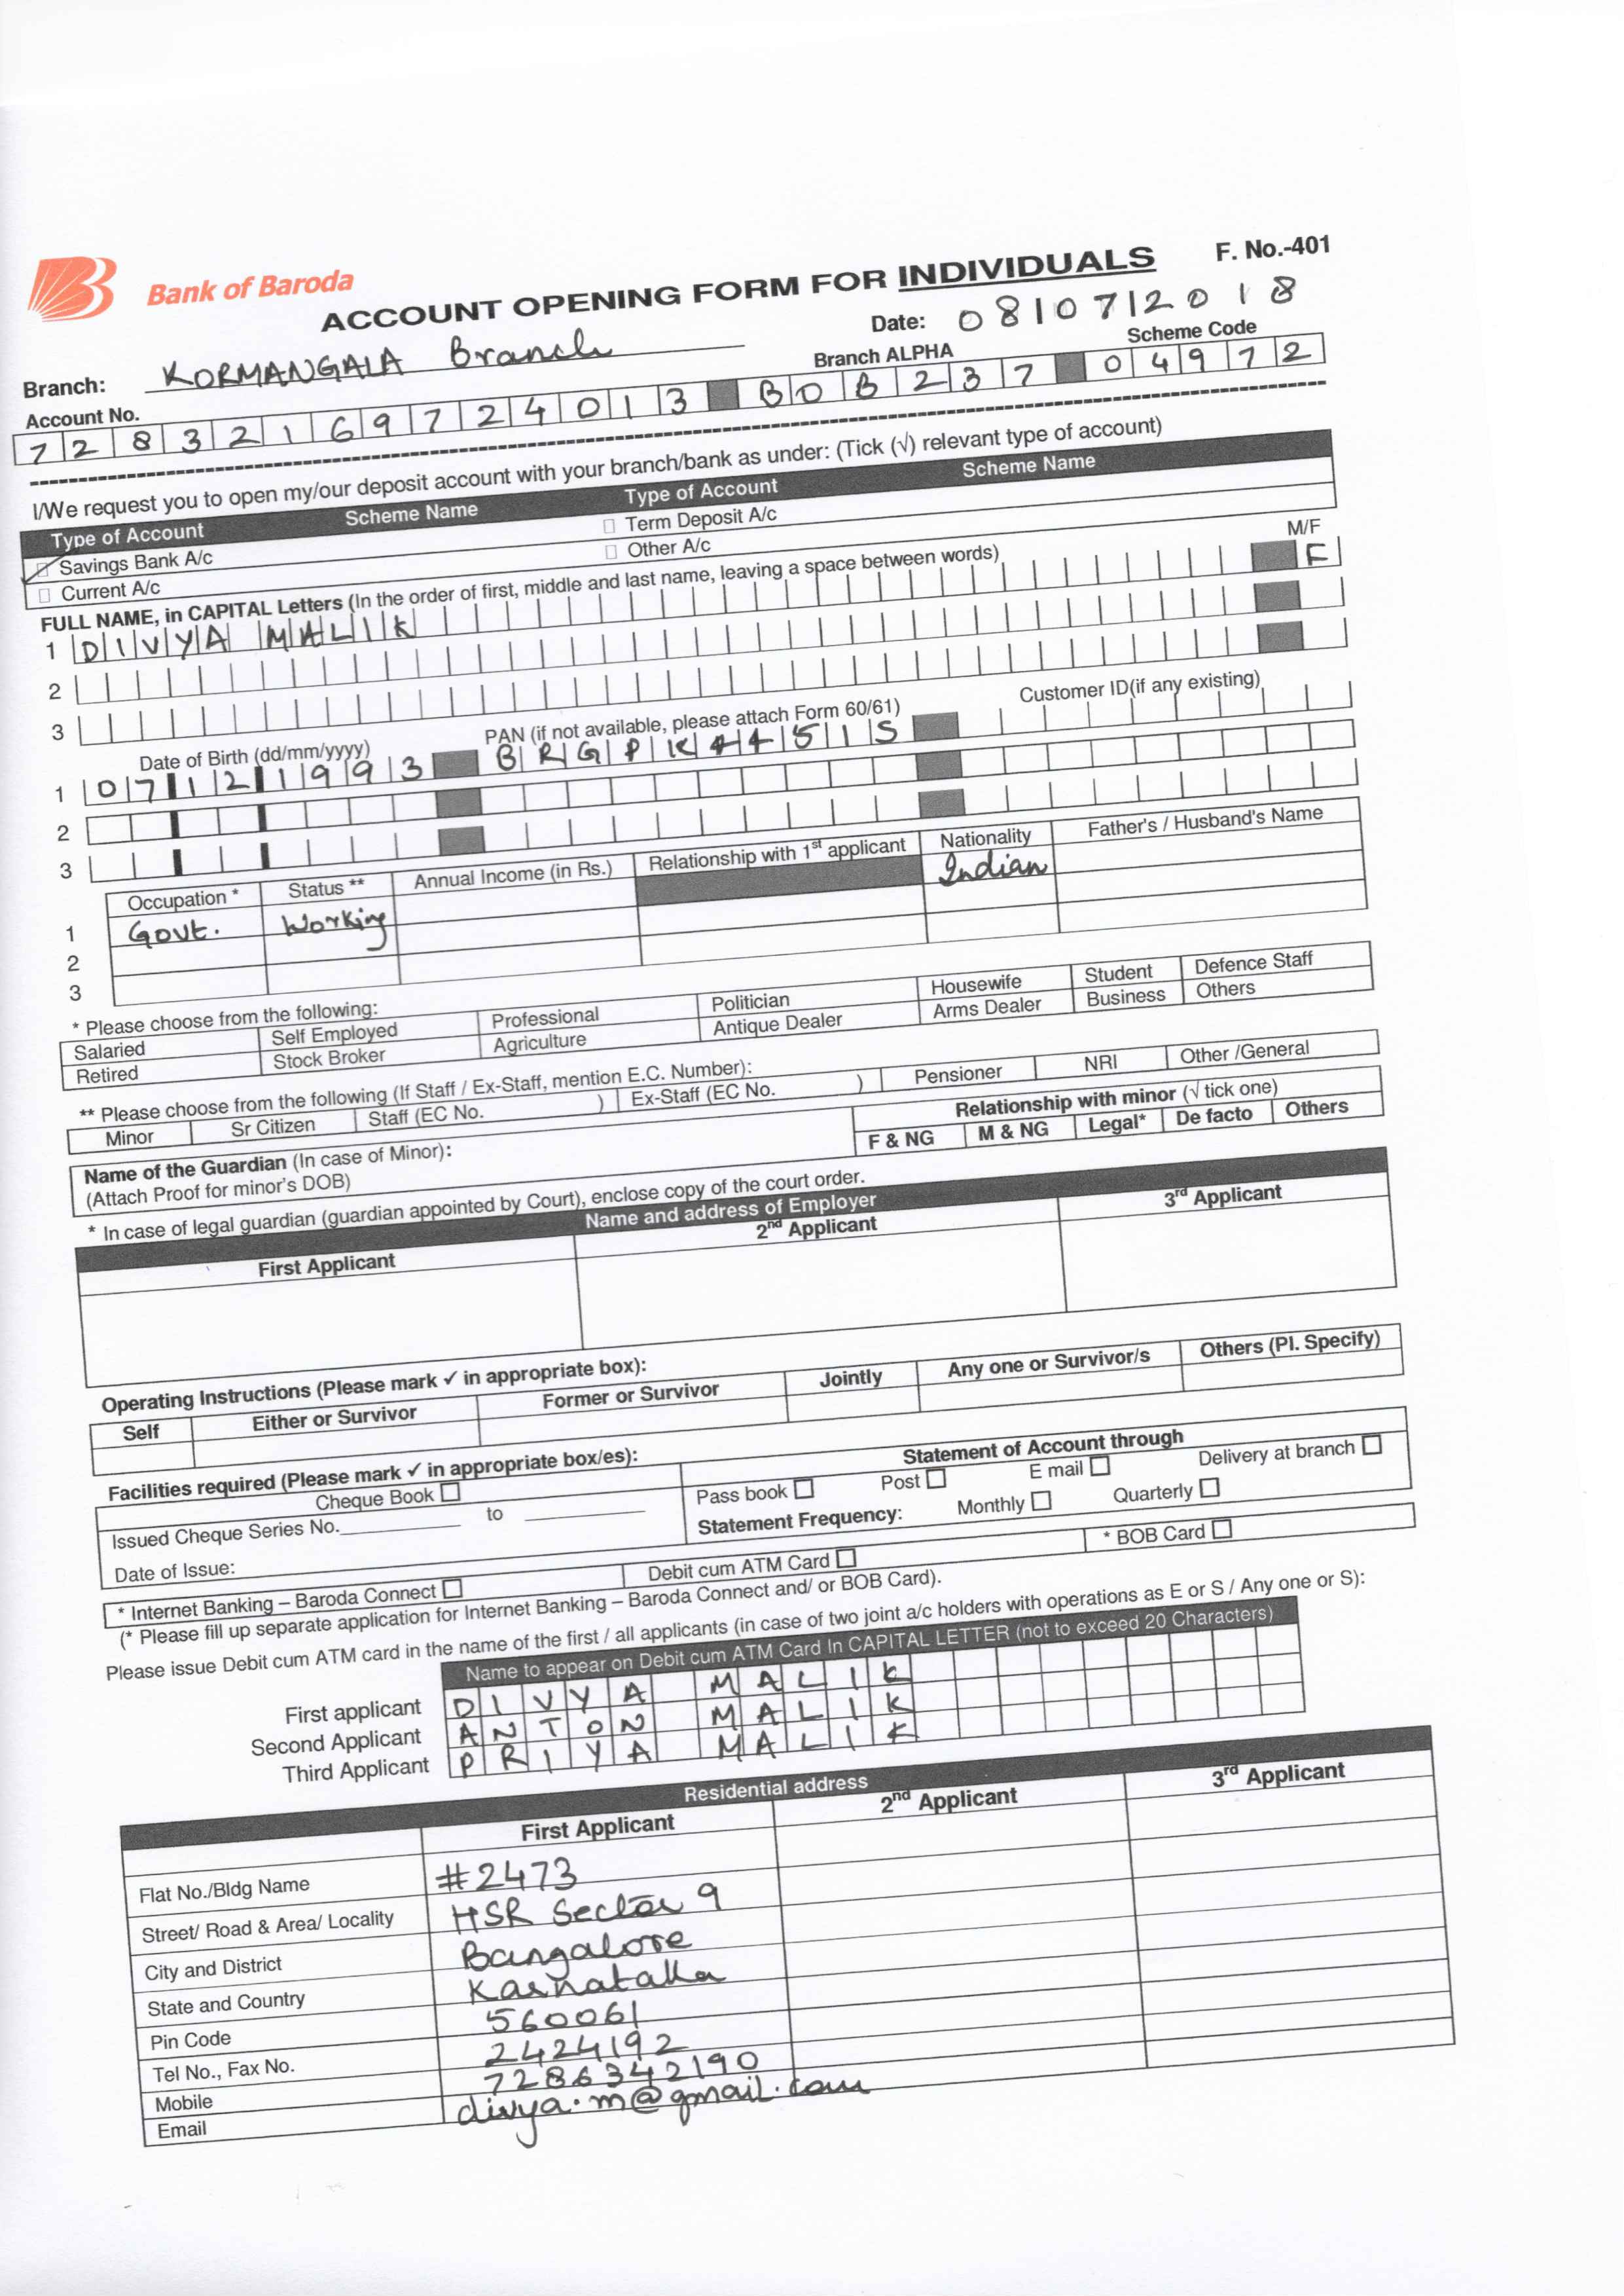 Bank of Baroda
ACCOUNT OPENING FORM FOR INDIVIDUALS
F. No.-401
Date: 08/07/2018
Branch: KORMANGALA Branch
Account No. Branch ALPHA Scheme Code
72832169724013 BOB237 04972
I/We request you to open my/our deposit account with your branch/bank as under: (Tick (√) relevant type of account)
Type of Account Scheme Name Type of Account Scheme Name
Savings Bank A/c Term Deposit A/c
Current A/c Other A/c
FULL NAME, in CAPITAL Letters (In the order of first, middle and last name, leaving a space between words) M/F
1 DIVYA MALIK F
2
3
Date of Birth (dd/mm/yyyy) PAN (if not available, please attach Form 60/61) Customer ID(if any existing)
1 07 12 1993 BRGPK4451S
2
3
Occupation * Status ** Annual Income (in Rs.) Relationship with 1st applicant Nationality Father's / Husband's Name
1 Govt. Working Indian
2
3
* Please choose from the following:
Salaried Self Employed Professional Politician Housewife Student Defence Staff
Retired Stock Broker Agriculture Antique Dealer Arms Dealer Business Others
** Please choose from the following (If Staff / Ex-Staff, mention E.C. Number):
Minor Sr Citizen Staff (EC No. ) Ex-Staff (EC No. ) Pensioner NRI Other /General
Name of the Guardian (In case of Minor): Relationship with minor (√ tick one)
(Attach Proof for minor's DOB) F & NG M & NG Legal* De facto Others
* In case of legal guardian (guardian appointed by Court), enclose copy of the court order.
Name and address of Employer
First Applicant 2nd Applicant 3rd Applicant
Operating Instructions (Please mark ✓ in appropriate box):
Self Either or Survivor Former or Survivor Jointly Any one or Survivor/s Others (Pl. Specify)
Facilities required (Please mark ✓ in appropriate box/es): Statement of Account through
Cheque Book Pass book Post E mail Delivery at branch
Issued Cheque Series No. to Statement Frequency: Monthly Quarterly
Date of Issue:
* Internet Banking – Baroda Connect Debit cum ATM Card * BOB Card
(* Please fill up separate application for Internet Banking – Baroda Connect and/ or BOB Card).
Please issue Debit cum ATM card in the name of the first / all applicants (in case of two joint a/c holders with operations as E or S / Any one or S):
Name to appear on Debit cum ATM Card In CAPITAL LETTER (not to exceed 20 Characters)
First applicant DIVYA MALIK
Second Applicant ANTON MALIK
Third Applicant PRIYA MALIK
Residential address
First Applicant 2nd Applicant 3rd Applicant
Flat No./Bldg Name #2473
Street/ Road & Area/ Locality HSR Sector 9
City and District Bangalore
State and Country Karnataka
Pin Code 560061
Tel No., Fax No. 2424192
Mobile 7286342190
Email divya.m@gmail.com